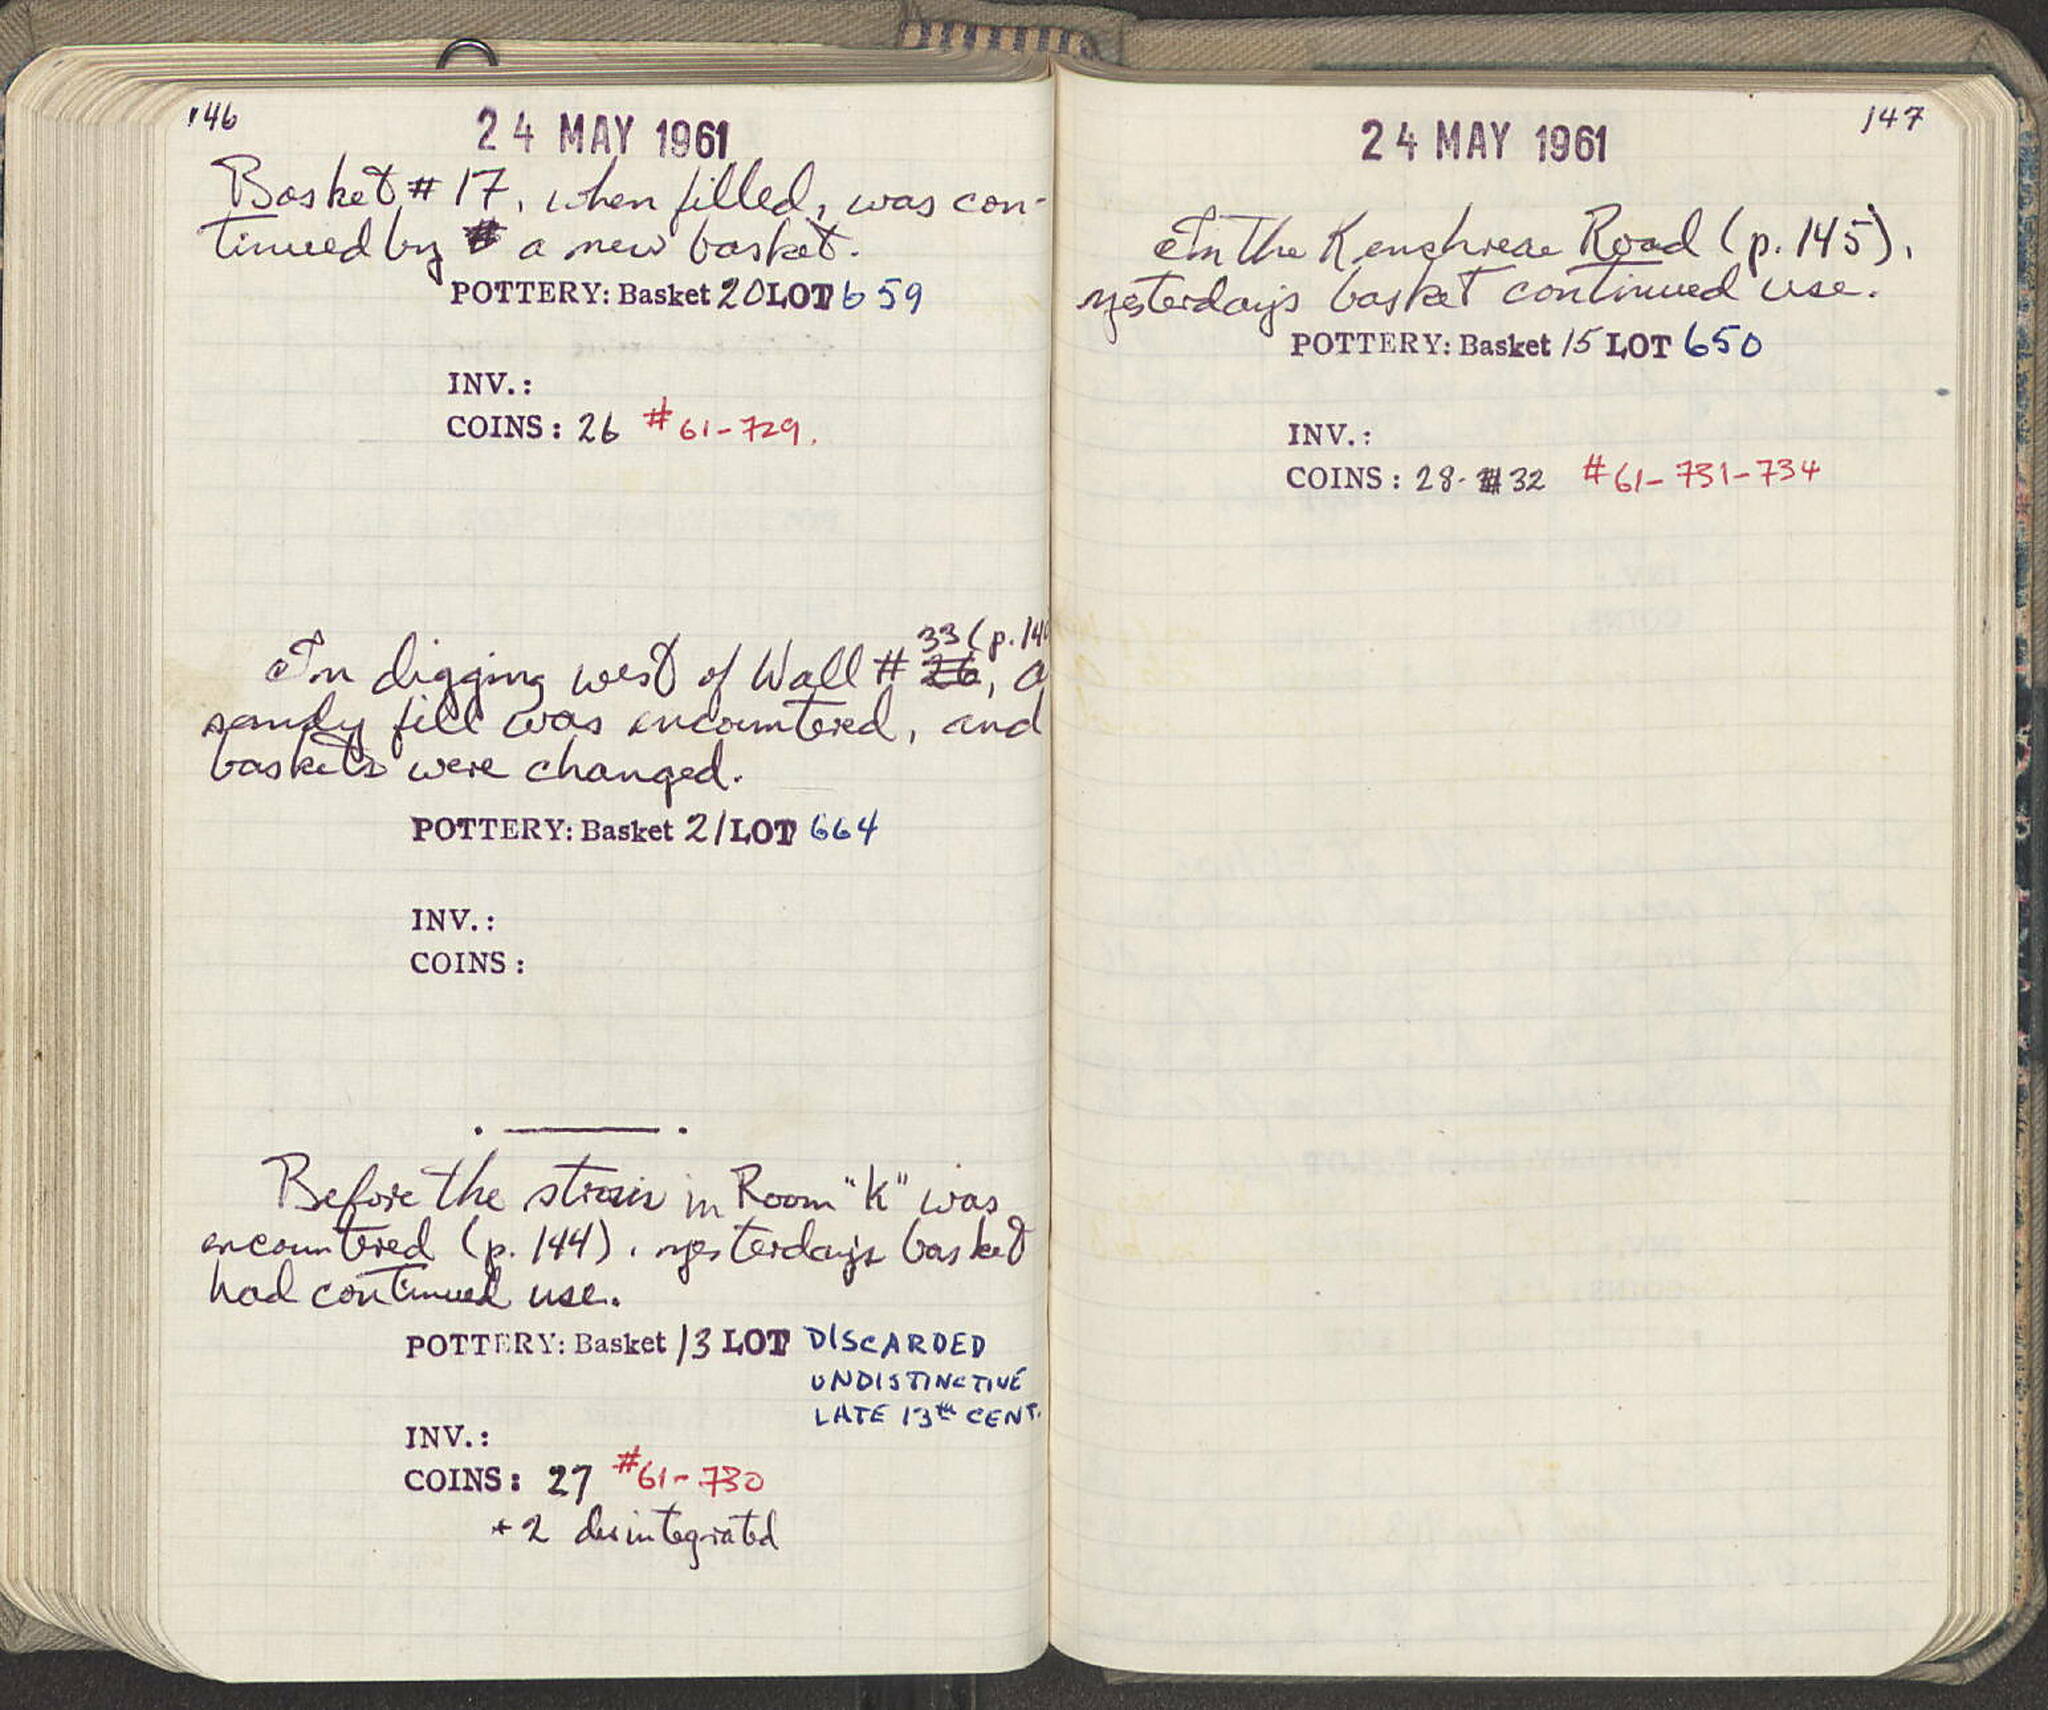 146
24 MAY 1961
Basket # 17, when filled, was con-
tinued by a new basket.
POTTERY: Basket 20 LOT 659
INV.:
COINS: 26 #61-729.
33 (p. 14
In digging west of Wall # 26, a
sandy fill was encountered, and
baskets were changed.
POTTERY: Basket 21 LOT 664
INV.:
COINS:
Before the strosis in Room "K" was
encountered (p. 144), yesterday's basket
had continued use.
POTTERY: Basket 13 LOT DISCARDED
UNDISTINCTIVE
LATE 13th CENT.
INV.:
COINS: 27 #61-730
+2 disintegrated
147
24 MAY 1961
In the Kenchreae Road (p. 145),
yesterday's basket continued use.
POTTERY: Basket 15 LOT 650
INV.:
COINS: 28-32 #61-731-734